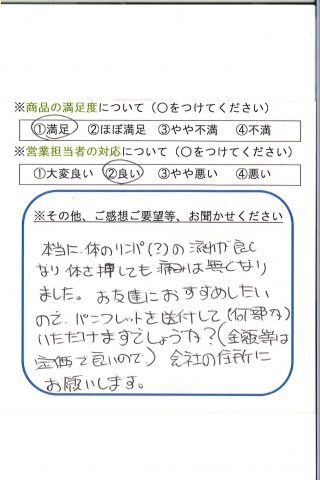 ※商品の満足度について（○をつけてください）
①満足 ②ほぼ満足 ③やや不満 ④不満
※営業担当者の対応について（○をつけてください）
①大変良い ②良い ③やや悪い ④悪い
※その他、ご感想ご要望等、お聞かせください
本当に体のリンパ(?)の流れが良く
なり体を押しても痛みは無くなり
ました。お友達におすすめしたい
ので、パンフレットを送付して(何部か)
いただけますでしょうか?(金額等は
定価で良いので)会社の住所に
お願いします。